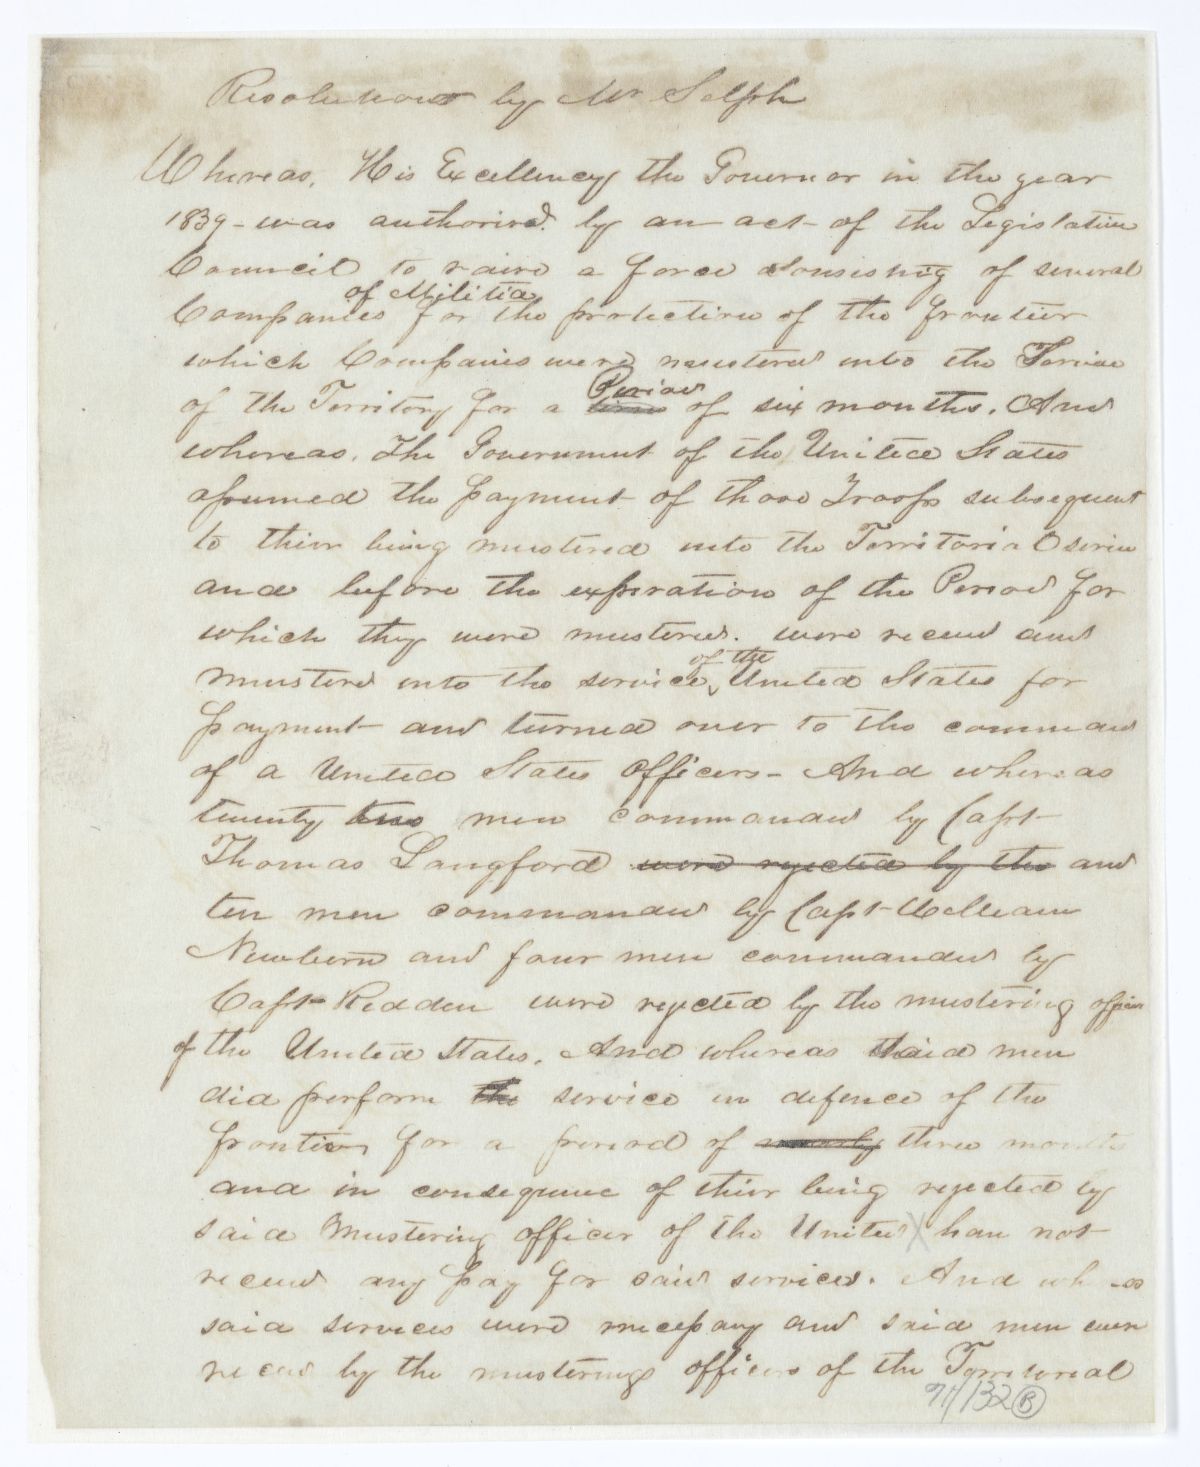 Resolutions by Mr Selph
Whereas, His Excellency the Governor in the year
1839 - was authorised. by an act of the Legislative
Council to raise a force consisting of several
of Militia
Companies for the protection of the frontier
which Companies were mustered into the Service
Period
of the Territory for a time of six months. And
whereas, The Government of the United States
assumed the payment of those Troops subsequent
to thier being mustered into the Territorial Service
and before the expiration of the Period for
which they were mustered. were received and
of the
mustered into the service United States for
payment and turned over to the command
of a United States officers - And whereas
twenty two men commanded by Capt
Thomas Langford were rejected by the and
ten men commanded by Capt William
Newbern and four men commanded by
Capt Redden were rejected by the mustering officer
of the United States. And whereas said men
did perform the service in defence of the
frontier for a period of nearly three months
and in consequence of thier being rejected by
said Mustering officer of the United X have not
received any pay for said services. And
said services were necessary and said men were
received by the mustering officers of the Territorial
71/132 B